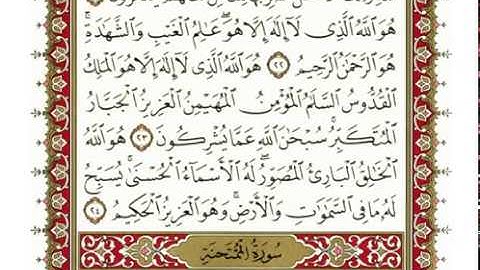 هُوَ ٱللَّهُ ٱلَّذِى لَآ إِلَٰهَ إِلَّا هُوَ ۖ عَٰلِمُ ٱلْغَيْبِ وَٱلشَّهَٰدَةِ ۖ
هُوَ ٱلرَّحْمَٰنُ ٱلرَّحِيمُ ٢٢ هُوَ ٱللَّهُ ٱلَّذِى لَآ إِلَٰهَ إِلَّا هُوَ ٱلْمَلِكُ
ٱلْقُدُّوسُ ٱلسَّلَٰمُ ٱلْمُؤْمِنُ ٱلْمُهَيْمِنُ ٱلْعَزِيزُ ٱلْجَبَّارُ
ٱلْمُتَكَبِّرُ ۚ سُبْحَٰنَ ٱللَّهِ عَمَّا يُشْرِكُونَ ٢٣ هُوَ ٱللَّهُ
ٱلْخَٰلِقُ ٱلْبَارِئُ ٱلْمُصَوِّرُ ۖ لَهُ ٱلْأَسْمَآءُ ٱلْحُسْنَىٰ ۚ يُسَبِّحُ
لَهُۥ مَا فِى ٱلسَّمَٰوَٰتِ وَٱلْأَرْضِ ۖ وَهُوَ ٱلْعَزِيزُ ٱلْحَكِيمُ ٢٤
سُورَةُ المُمْتَحنَةِ